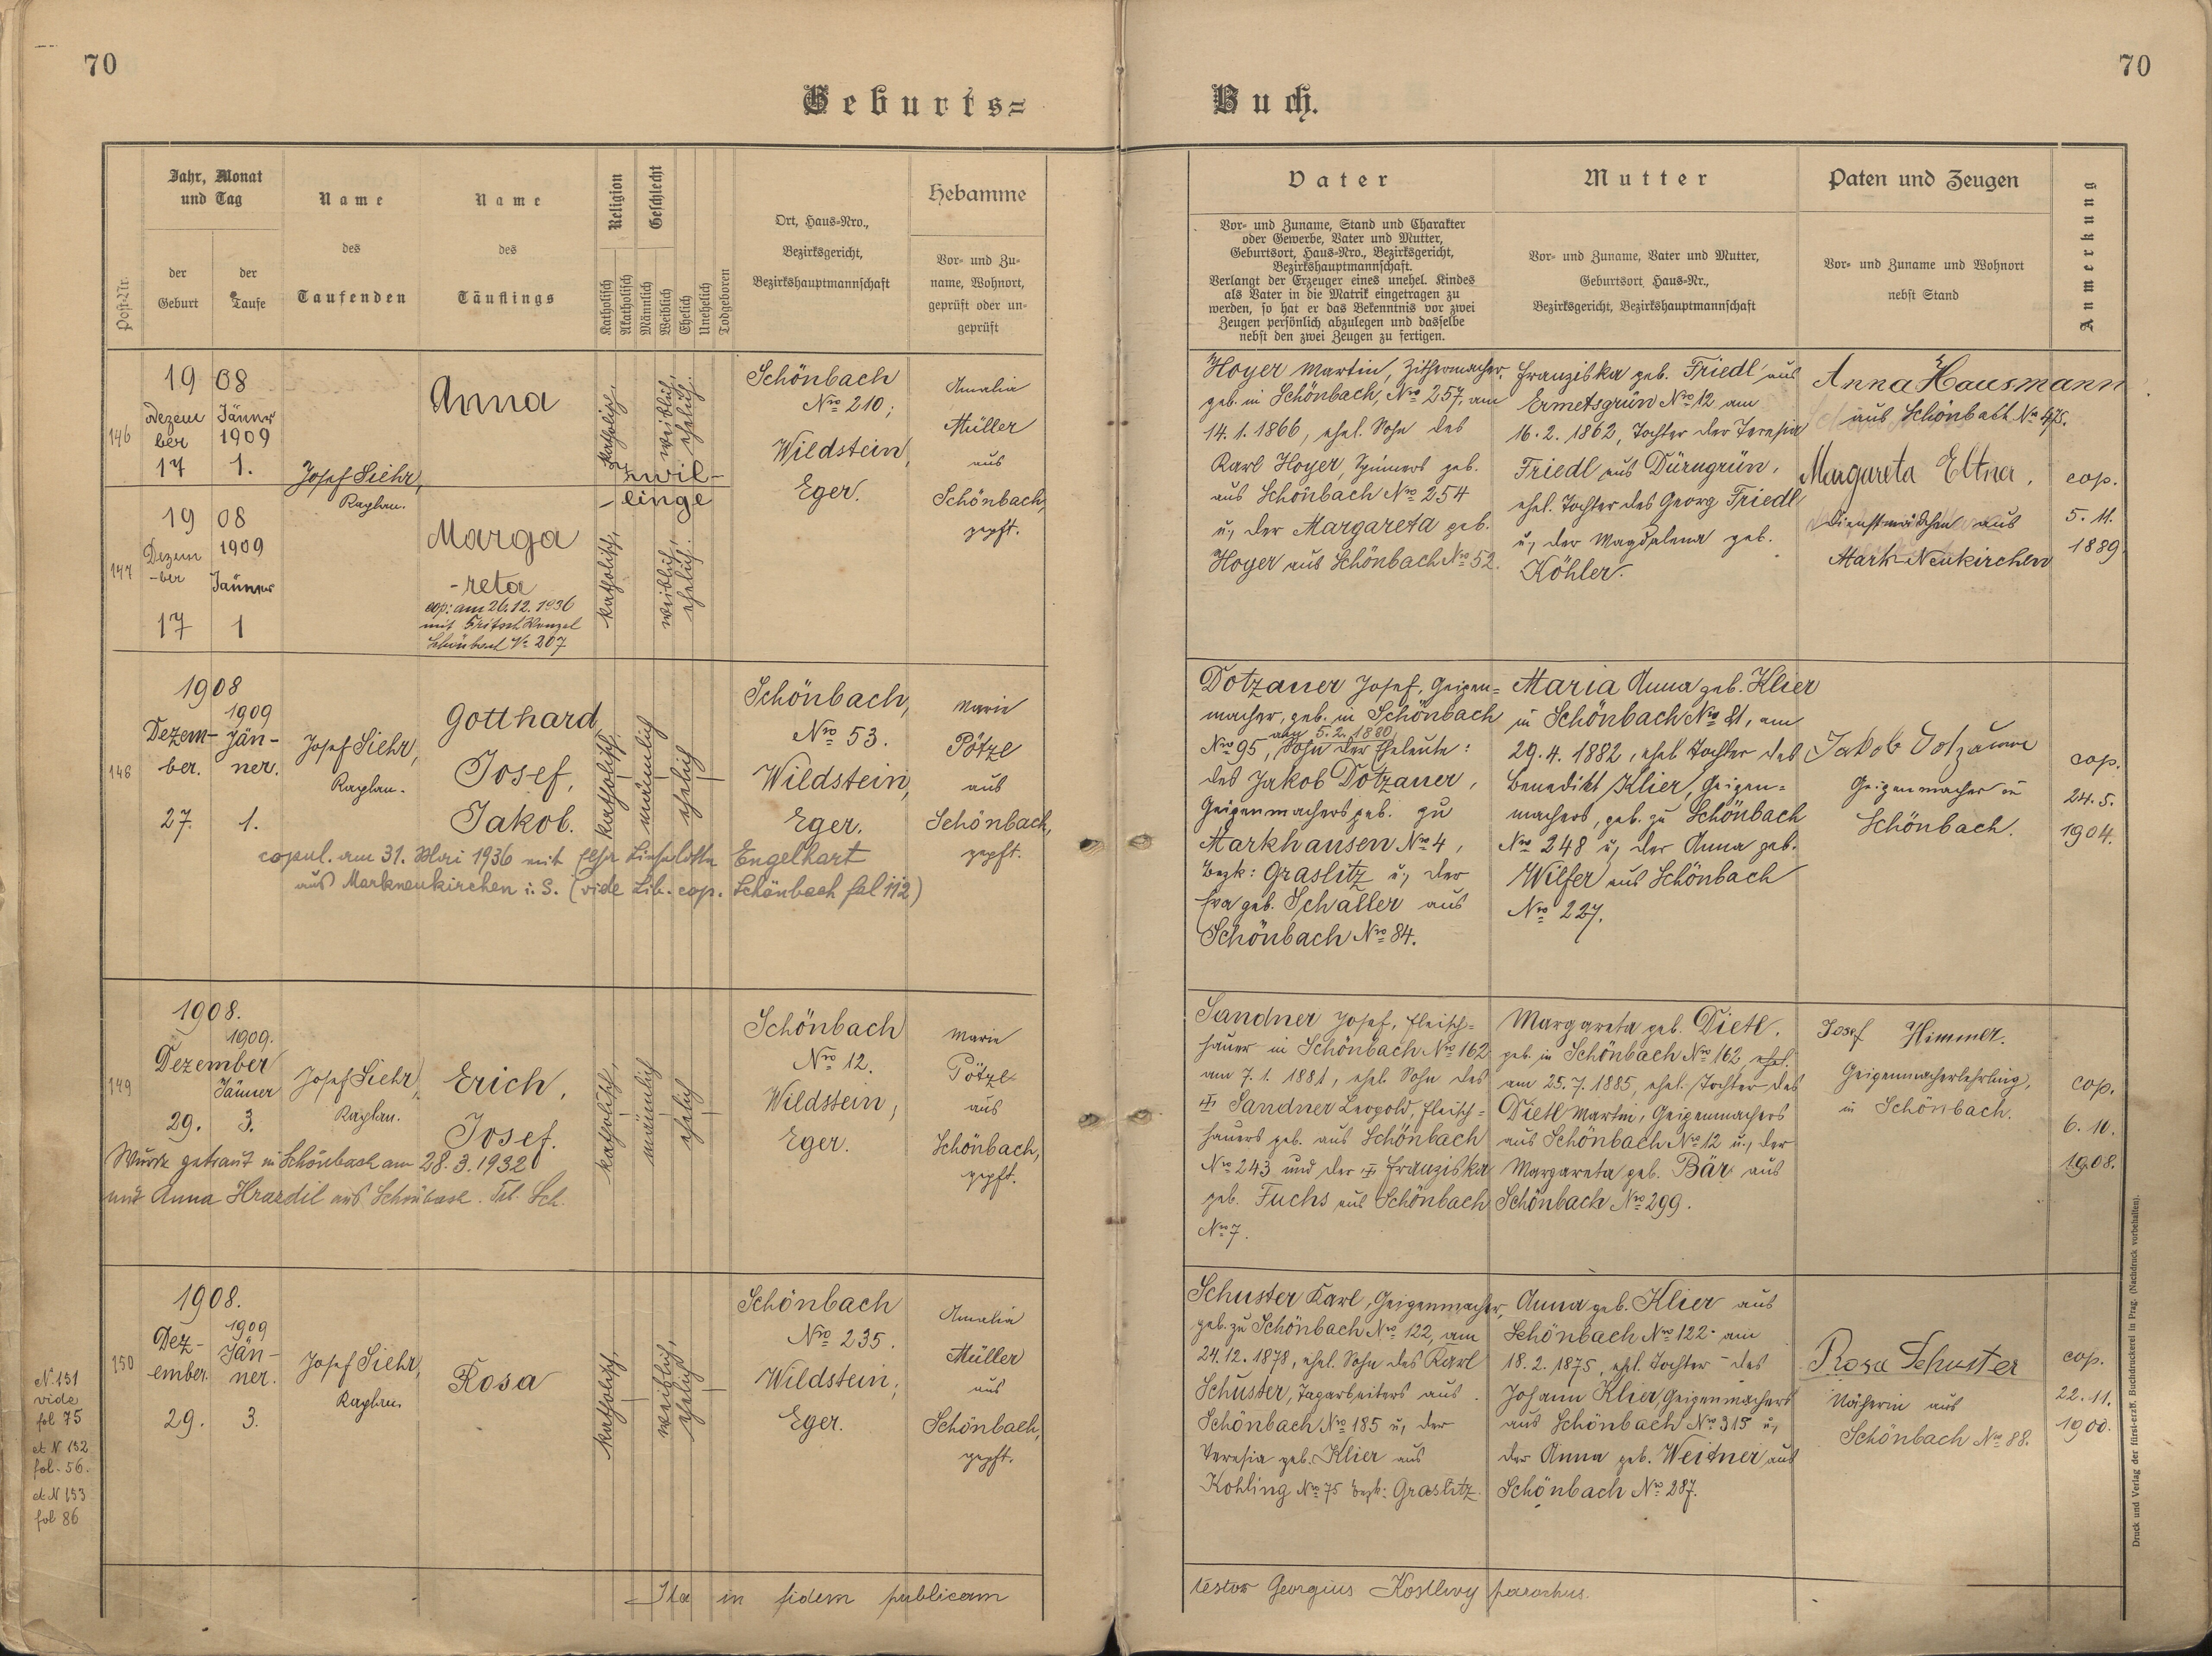 70
70
Geburts=
Buch.
Jahr, Monat
und Tag
der
Geburt
der
Taufe
Post-Nr.
Name
des
Taufenden
Name
des
Täuflings
Religion
Geschlecht
Katholisch
Akatholisch
Männlich
Weiblich
Ehelich
Unehelich
Todgeboren
Ort, Haus=Nro.,
Bezirksgericht,
Bezirkshauptmannschaft
Hebamme
Vor= und Zu=
name, Wohnort,
geprüft oder un=
geprüft
Vater
Vor= und Zuname, Stand und Charakter
oder Gewerbe, Vater und Mutter,
Geburtsort, Haus=Nro., Bezirksgericht,
Bezirkshauptmannschaft.
Verlangt der Erzeuger eines unehel. Kindes
als Vater in die Matrik eingetragen zu
werden, so hat er das Bekenntnis vor zwei
Zeugen persönlich abzulegen und dasselbe
nebst den zwei Zeugen zu fertigen.
Mutter
Vor= und Zuname, Vater und Mutter,
Geburtsort, Haus=Nr.,
Bezirksgericht, Bezirkshauptmannschaft
Paten und Zeugen
Vor= und Zuname und Wohnort
nebst Stand
Anmerkung
146
19 08
Dezem
ber
17
Jänner
1909
1.
Josef Siehr,
Kaplan.
Anna
katholisch,
weiblich,
ehelich.
Zwil-
-linge
Schönbach
Nro 210;
Wildstein,
Eger.
Amalia
Müller
aus
Schönbach,
gepft.
Hoyer Martin, Zithermacher,
geb. in Schönbach, Nro 257, am
14. 1. 1866, ehel. Sohn des
Karl Hoyer, Spinners geb.
aus Schönbach Nro 254
u, der Margareta geb.
Hoyer aus Schönbach Nro 52.
Franziska geb. Friedl aus
Ermetsgrün Nro 12 am
16. 2. 1862, Tochter der Teresia
Friedl aus Dürngrün,
ehel. Tochter des Georg Friedl
u, der Magdalena geb.
Köhler.
Anna Hausmann
aus Schönbach No 475.
Margareta Eltner,
Dienstmädchen aus
Mark-Neukirchen
cop.
5. 11.
1889.
147
19 08
Dezem
-ber
17
1909
Jänner
1
Marga
-reta
cop: am 26.12.1936
mit Fritsch Wenzel
Schönbach No 207
katholisch,
weiblich,
ehelich.
148
1908
Dezem-
ber.
27.
1909
Jän-
ner.
1.
Josef Siehr,
Kaplan.
Gotthard
Josef,
Jakob.
katholisch,
männlich
ehelich
Schönbach,
Nro 53.
Wildstein,
Eger.
Marie
Pötzl
aus
Schönbach,
gepft.
copul. am 31. Mai 1936 mit Elsa Lieselotte Engelhart
aus Markneukirchen i. S. (vide Lib. cop. Schönbach fol 112)
Dotzauer Josef, Geigen=
macher, geb. in Schönbach
am 5. 2. 1880
Nro 95, Sohn der Eheleute:
des Jakob Dotzauer,
Geigenmachers geb. zu
Markhausen No 4,
Bezk: Graslitz u, der
Eva geb. Schaller aus
Schönbach Nro 84.
Maria Anna geb. Klier
in Schönbach Nro 21, am
29. 4. 1882, ehel. Tochter des
Benedikt Klier, Geigen=
machers, geb. zu Schönbach
Nro 248 u, der Anna geb.
Wilfer aus Schönbach
Nro 227.
Jakob Dotzauer
Geigenmacher in
Schönbach.
cop.
24. 5.
1904.
149
1908.
Dezember
29.
1909.
Jänner
3.
Josef Siehr,
Kaplan.
Erich,
Josef.
katholisch,
männlich
ehelich
Schönbach
Nro 12.
Wildstein,
Eger.
Marie
Pötzl
aus
Schönbach,
gepft.
Wurde getraut in Schönbach am 28. 3. 1932
mit Anna Hrardil aus Schönbach.
Sandner Josef, Fleisch=
hauer in Schönbach Nro 162
am 7. 1. 1881, ehel. Sohn des
Sandner Leopold, Fleisch=
hauers geb. aus Schönbach
Nro 243 und der Franziska
geb. Fuchs aus Schönbach
Nro 7.
Margareta geb. Dietl.
geb. in Schönbach Nro 162, ehel.
am 25. 7. 1885, ehel. Tochter des
Dietl Martin, Geigenmachers
aus Schönbach Nro 12 u, der
Margareta geb. Bär aus
Schönbach Nro 299.
Josef Himmer.
Geigenmacherlehrling,
in Schönbach.
cop.
6. 10.
1908.
150
1908.
Dez-
ember.
29.
1909
Jän-
ner.
3.
Josef Siehr,
Kaplan.
Rosa
katholisch,
weiblich,
ehelich,
Schönbach
Nro 235.
Wildstein;
Eger.
Amalia
Müller
aus
Schönbach,
gepft.
Schuster Karl, Geigenmacher,
geb. zu Schönbach Nro 122, am
24. 12. 1878, ehel. Sohn des Karl
Schuster, Tagarbeiters aus
Schönbach Nro 185 u, der
Teresia geb. Klier aus
Kohling Nro 75 Bezk: Graslitz.
Anna geb. Klier aus
Schönbach Nro 122 am
18. 2. 1875, ehel. Tochter des
Johann Klier, Geigenmachers
aus Schönbach Nro 315 u,
der Anna geb. Weidner aus
Schönbach Nro 287.
Rosa Schuster
Näherin aus
Schönbach No 88.
cop.
22. 11.
1900.
N. 151
vide
fol 75
et N 152
fol. 56.
et N 153
fol 86
Ita in fidem publicam
testor Georgius Kostlivy parochus.
Druck und Verlag der fürst-erzb. Buchdruckerei in Prag. (Nachdruck vorbehalten).